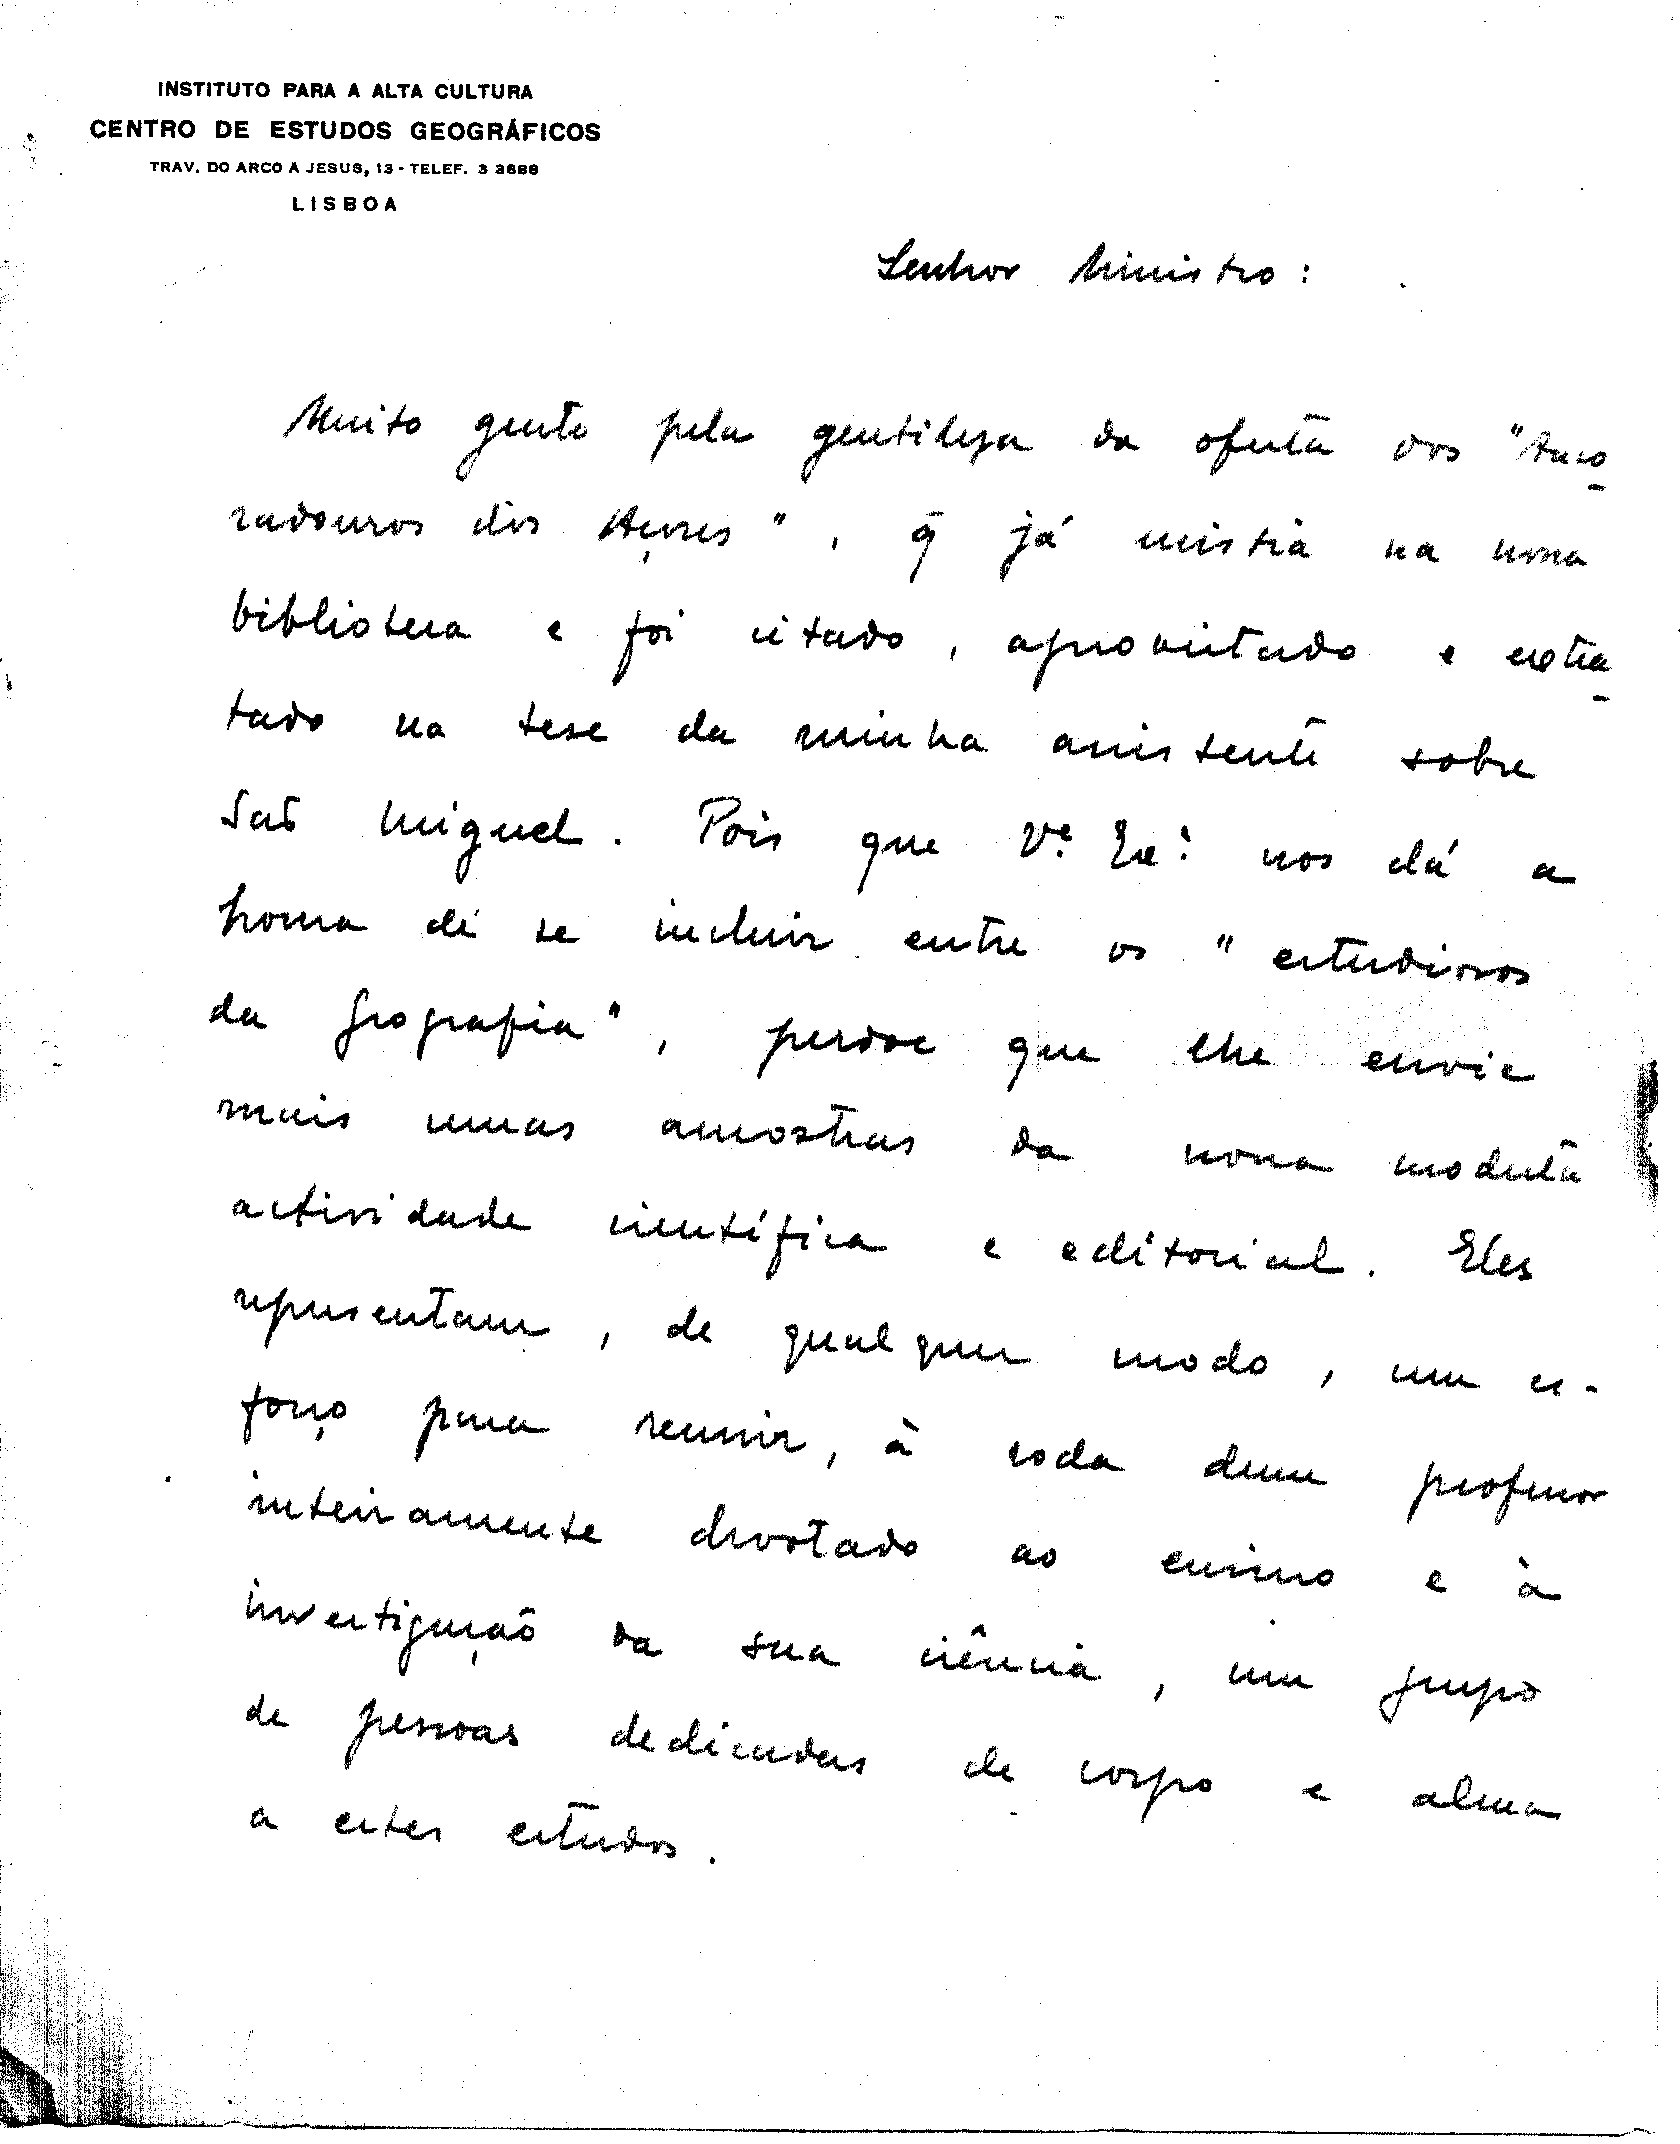 INSTITUTO PARA A ALTA CULTURA
CENTRO DE ESTUDOS GEOGRÁFICOS
TRAV. DO ARCO A JESUS, 13 - TELEF. 3
LISBOA
Senhor Ministro:
Muito grato pela gentileza da oferta dos "Anco
radouros dos Açores", q̃ já existia na nossa
biblioteca e foi citado, aproveitado e extra
tado na tese da minha assistente sobre
São Miguel. Pois que V.ª Ex.ª nos dá a
honra de se incluir entre os "estudiosos
da Geografia", perdoe que lhe envie
mais umas amostras da nossa modesta
actividade científica e editorial. Eles
representam, de qualquer modo, um es-
forço para reunir, à roda dum professor
inteiramente devotado ao ensino e à
investigação da sua ciência, um grupo
de pessoas dedicadas de corpo e alma
a estes estudos.